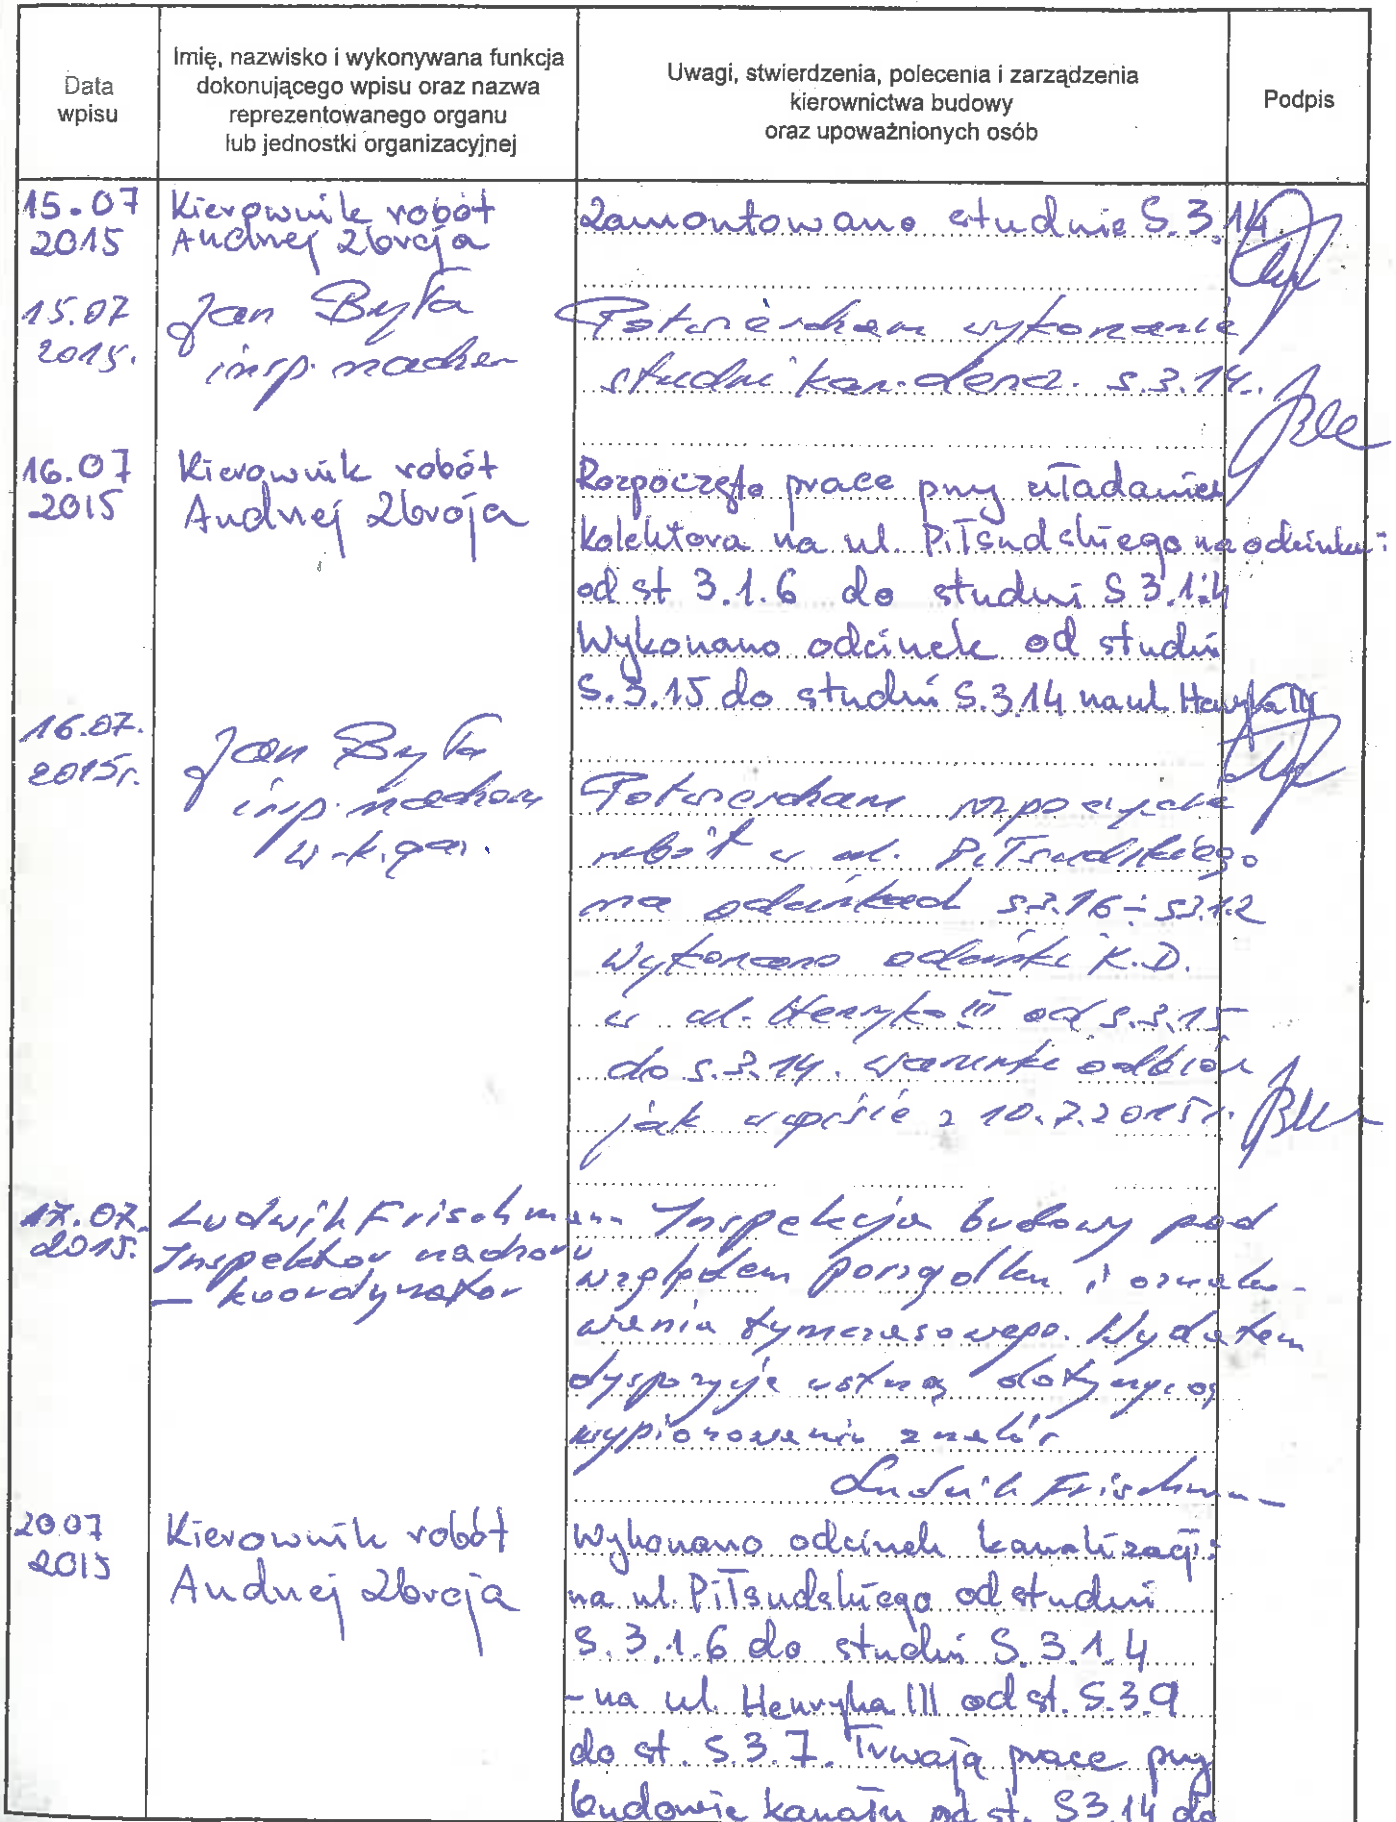 Data
wpisu
Imię, nazwisko i wykonywana funkcja
dokonującego wpisu oraz nazwa
reprezentowanego organu
lub jednostki organizacyjnej
Uwagi, stwierdzenia, polecenia i zarządzenia
kierownictwa budowy
oraz upoważnionych osób
Podpis
15.07
2015
Kierownik robót
Andrzej Zbroja
Zamontowano studnie S.3.14
15.07
2015.
Jan Była
insp. nadzoru
Potwierdzam wykonanie
studni kan. deszcz. S.3.14.
16.07
2015
Kierownik robót
Andrzej Zbroja
Rozpoczęto prace przy układaniu
kolektora na ul. Piłsudskiego na odcinku:
od st 3.1.6 do studni S 3.1.4
Wykonano odcinek od studni
S.3.15 do studni S.3.14 na ul. Henryka III
16.07.
2015r.
Jan Była
insp. nadzoru
Potwierdzam rozpoczęcie
robót w ul. Piłsudskiego
na odcinkach S3.16 ÷ S3.1.2
Wykonano odcinki K.D.
w ul. Henryka III od S.3.15
do S.3.14. warunki odbioru
jak w wpisie z 10.7.2015r.
17.07.
2015.
Ludwik Frischmann
Inspektor nadzoru
– koordynator
Inspekcja budowy pod
względem porządku i oznako-
wania tymczasowego. Wydałem
dyspozycję ustną dotyczącą
wypionowania znaków
Ludwik Frischmann
20.07
2015
Kierownik robót
Andrzej Zbroja
Wykonano odcinek kanalizacji:
na ul. Piłsudskiego od studni
S.3.1.6 do studni S.3.1.4
- na ul. Henryka III od st. S.3.9
do st. S.3.7. Trwają prace przy
budowie kanału od st. S3.14 do